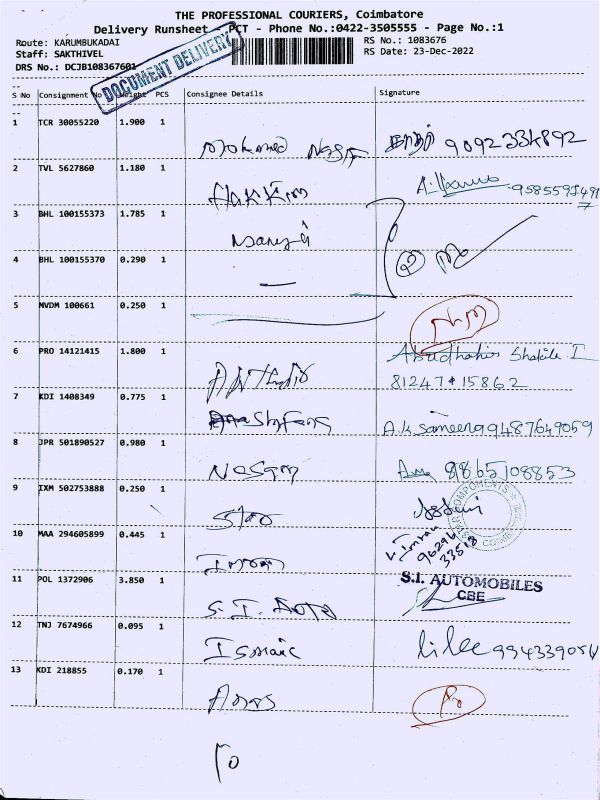 THE PROFESSIONAL COURIERS, Coimbatore
Delivery Runsheet - PCT - Phone No.:0422-3505555 - Page No.:1
Route: KARUMBUKADAI RS No.: 1083676
Staff: SAKTHIVEL RS Date: 23-Dec-2022
DRS No.: DCJB108367601
DOCUMENT DELIVERY
S No Consignment No Weight PCS Consignee Details Signature
1 TCR 30055220 1.900 1
Mohamed 9092334892
2 TVL 5627860 1.180 1
HaKKim
3 BHL 100155373 1.785 1
4 BHL 100155370 0.290 1
5 MVDM 100661 0.250 1
6 PRO 14121415 1.800 1
81247 15862
7 KDI 1408349 0.775 1
A.K sameena 9487649059
8 JPR 501890527 0.980 1
9865108853
9 IXM 502753888 0.250 1
Star
COMPONENTS
10 MAA 294605899 0.445 1
Imran V. Imran
96294
33518
11 POL 1372906 3.850 1
S.I. AUTOMOBILES
CBE
S.I. Auto
12 TNJ 7674966 0.095 1
Ismail
13 KDI 218855 0.170 1